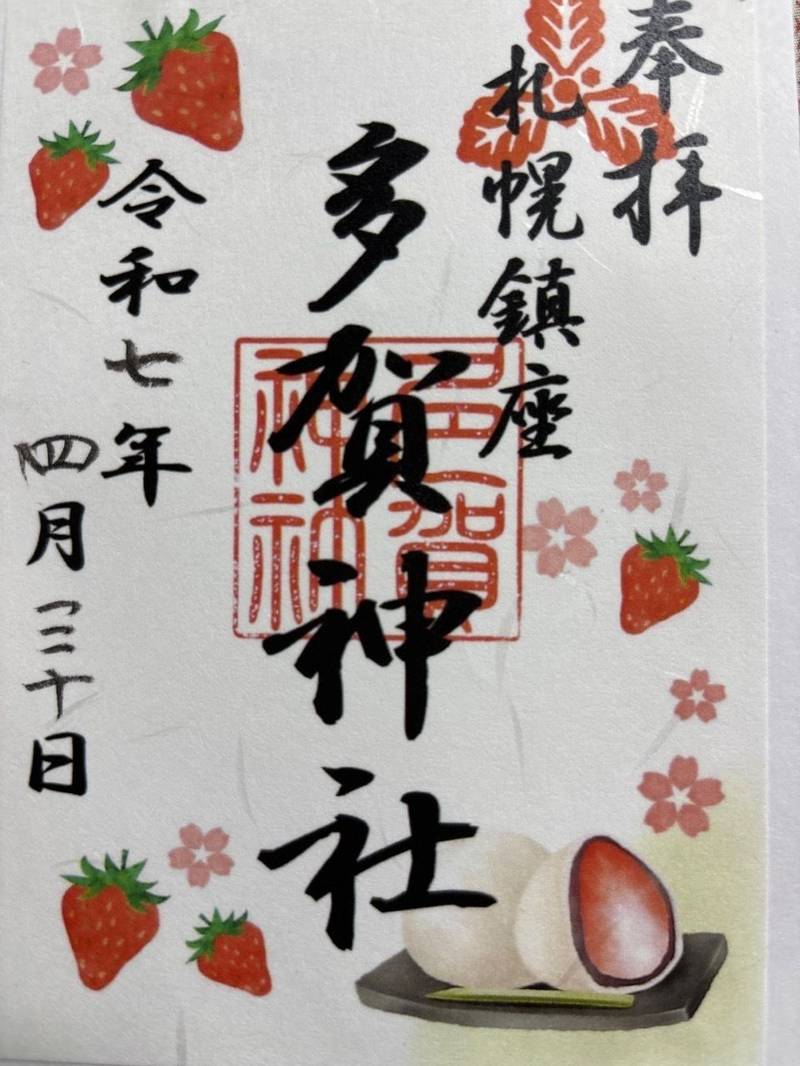 奉拝
札幌鎮座
多賀神社
令和七年
四月三十日
多賀
神社